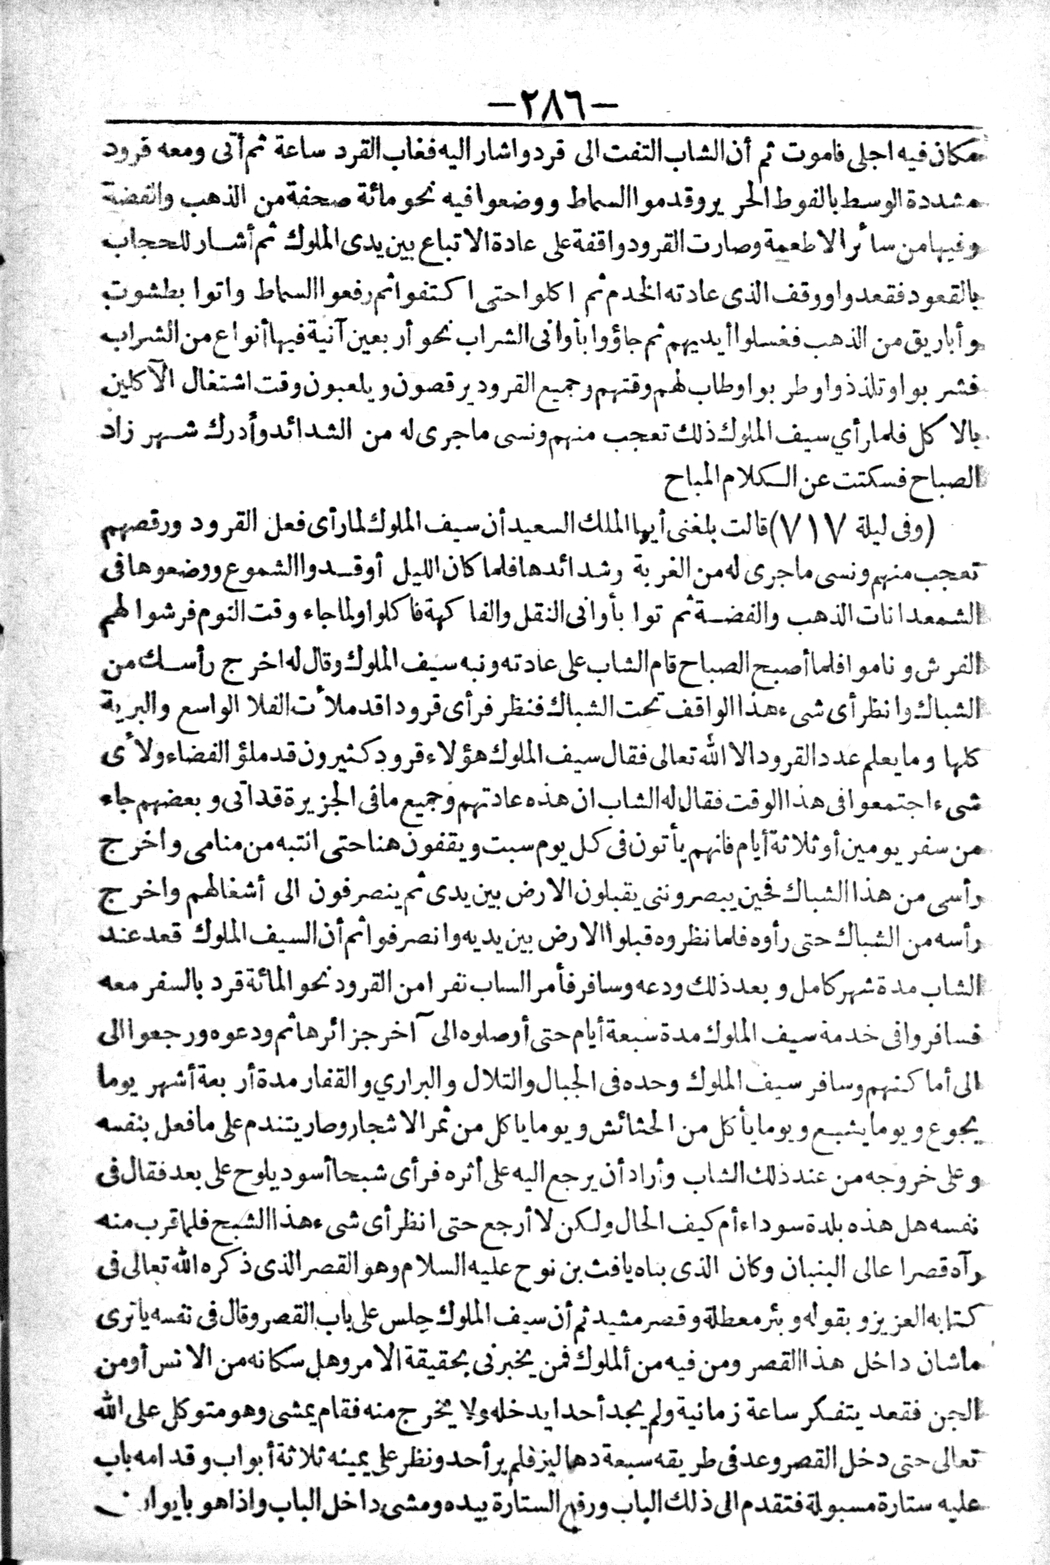 —٢٨٦—
مكان فيه اجلى فاموت ثم أن الشاب التفت الى قرد واشار اليه فغاب القرد ساعة ثم أتى ومعه قرود
مشددة الوسط بالفوط الحرير وقدموا السماط ووضعوا فيه نحو مائة صحفة من الذهب والفضة
وفيها من سائر الاطعمة وصارت القرود واقفة على عادة الاتباع بين يدى الملوك ثم أشار للحجاب
بالقعود فقعدوا ووقف الذى عادته الخدم ثم اكلوا حتى اكتفوا ثم رفعوا السماط واتوا بطشوت
وأباريق من الذهب فغسلوا أيديهم ثم جاؤوا بأوانى الشراب نحو أربعين آنية فيها أنواع من الشراب
فشربوا وتلذذوا وطربوا وطاب لهم وقتهم وجميع القرود يرقصون ويلعبون وقت اشتغال الآكلين
بالاكل فلما رأي سيف الملوك ذلك تعجب منهم ونسى ماجرى له من الشدائد وأدرك شهر زاد
الصباح فسكتت عن الكلام المباح
(وفى ليلة ٧١٧) قالت بلغنى أيها الملك السعيد أن سيف الملوك لما رأى فعل القرود ورقصهم
تعجب منهم ونسى ماجرى له من الغربة وشدائدها فلما كان الليل أوقدوا الشموع ووضعوها فى
الشمعدانات الذهب والفضة ثم توا بأوانى النقل والفاكهة فاكلوا ولما جاء وقت النوم فرشوا لهم
الفرش وناموا فلما أصبح الصباح قام الشاب على عادته ونبه سيف الملوك وقال له اخرج رأسك من
الشباك وانظر أى شىء هذا الواقف تحت الشباك فنظر فرأى قرودا قد ملأت الفلا الواسع والبرية
كلها وما يعلم عدد القرود الا الله تعالى فقال سيف الملوك هؤلاء قرود كثيرون قد ملؤ الفضاء ولأى
شىء اجتمعوا فى هذا الوقت فقال له الشاب ان هذه عادتهم وجميع مافى الجزيرة قد اتى وبعضهم جاء
من سفر يومين أو ثلاثة أيام فانهم يأتون فى كل يوم سبت ويقفون هنا حتى انتبه من منامى واخرج
رأسى من هذا الشباك فحين يبصروننى يقبلون الارض بين يدى ثم ينصرفون الى أشغالهم واخرج
رأسه من الشباك حتى رأوه فلما نظروه قبلوا الارض بين يديه وانصرفوا ثم أن السيف الملوك قعد عند
الشاب مدة شهر كامل وبعد ذلك ودعه وسافر فأمر الساب نفرا من القرود نحو المائة قرد بالسفر معه
فسافروا فى خدمة سيف الملوك مدة سبعة أيام حتى أوصلوه الى آخر جزائرها ثم ودعوه ورجعوا الى
الى أماكنهم وسافر سيف الملوك وحده فى الجبال والتلال والبراري والقفار مدة أربعة أشهر يوما
يجوع ويوما يشبع ويوما يأكل من الحشائش ويوما ياكل من ثمر الاشجار وصار يتندم على مافعل بنفسه
وعلى خروجه من عند ذلك الشاب وأراد أن يرجع اليه على أثره فرأى شبحا أسود يلوح على بعد فقال فى
نفسه هل هذه بلدة سوداء أم كيف الحال ولكن لا أرجع حتى انظر أى شىء هذا الشبح فلما قرب منه
رآه قصرا عالى البنبان وكان الذى بناه يافث بن نوح عليه السلام وهو القصر الذى ذكره الله تعالى فى
كتابه العزيز وبقوله وبئر معطلة وقصر مشيد ثم أن سيف الملوك جلس على باب القصر وقال فى نفسه ياترى
ماشان داخل هذا القصر ومن فيه من ألملوك فمن يخبرنى بحقيقة الامر وهل سكانه من الانس أو من
الجن فقعد يتفكر ساعة زمانية ولم يجد أحدا يدخله ولا يخرج منه فقام يمشى وهو متوكل على الله
تعالى حتى دخل القصر وعد فى طريقه سبعة دهاليز فلم ير أحد ونظر على يمينه ثلاثة أبواب وقدامه باب
عليه ستارة مسبولة فتقدم الى ذلك الباب ورفع الستارة بيده ومشى داخل الباب واذا هو بايوان